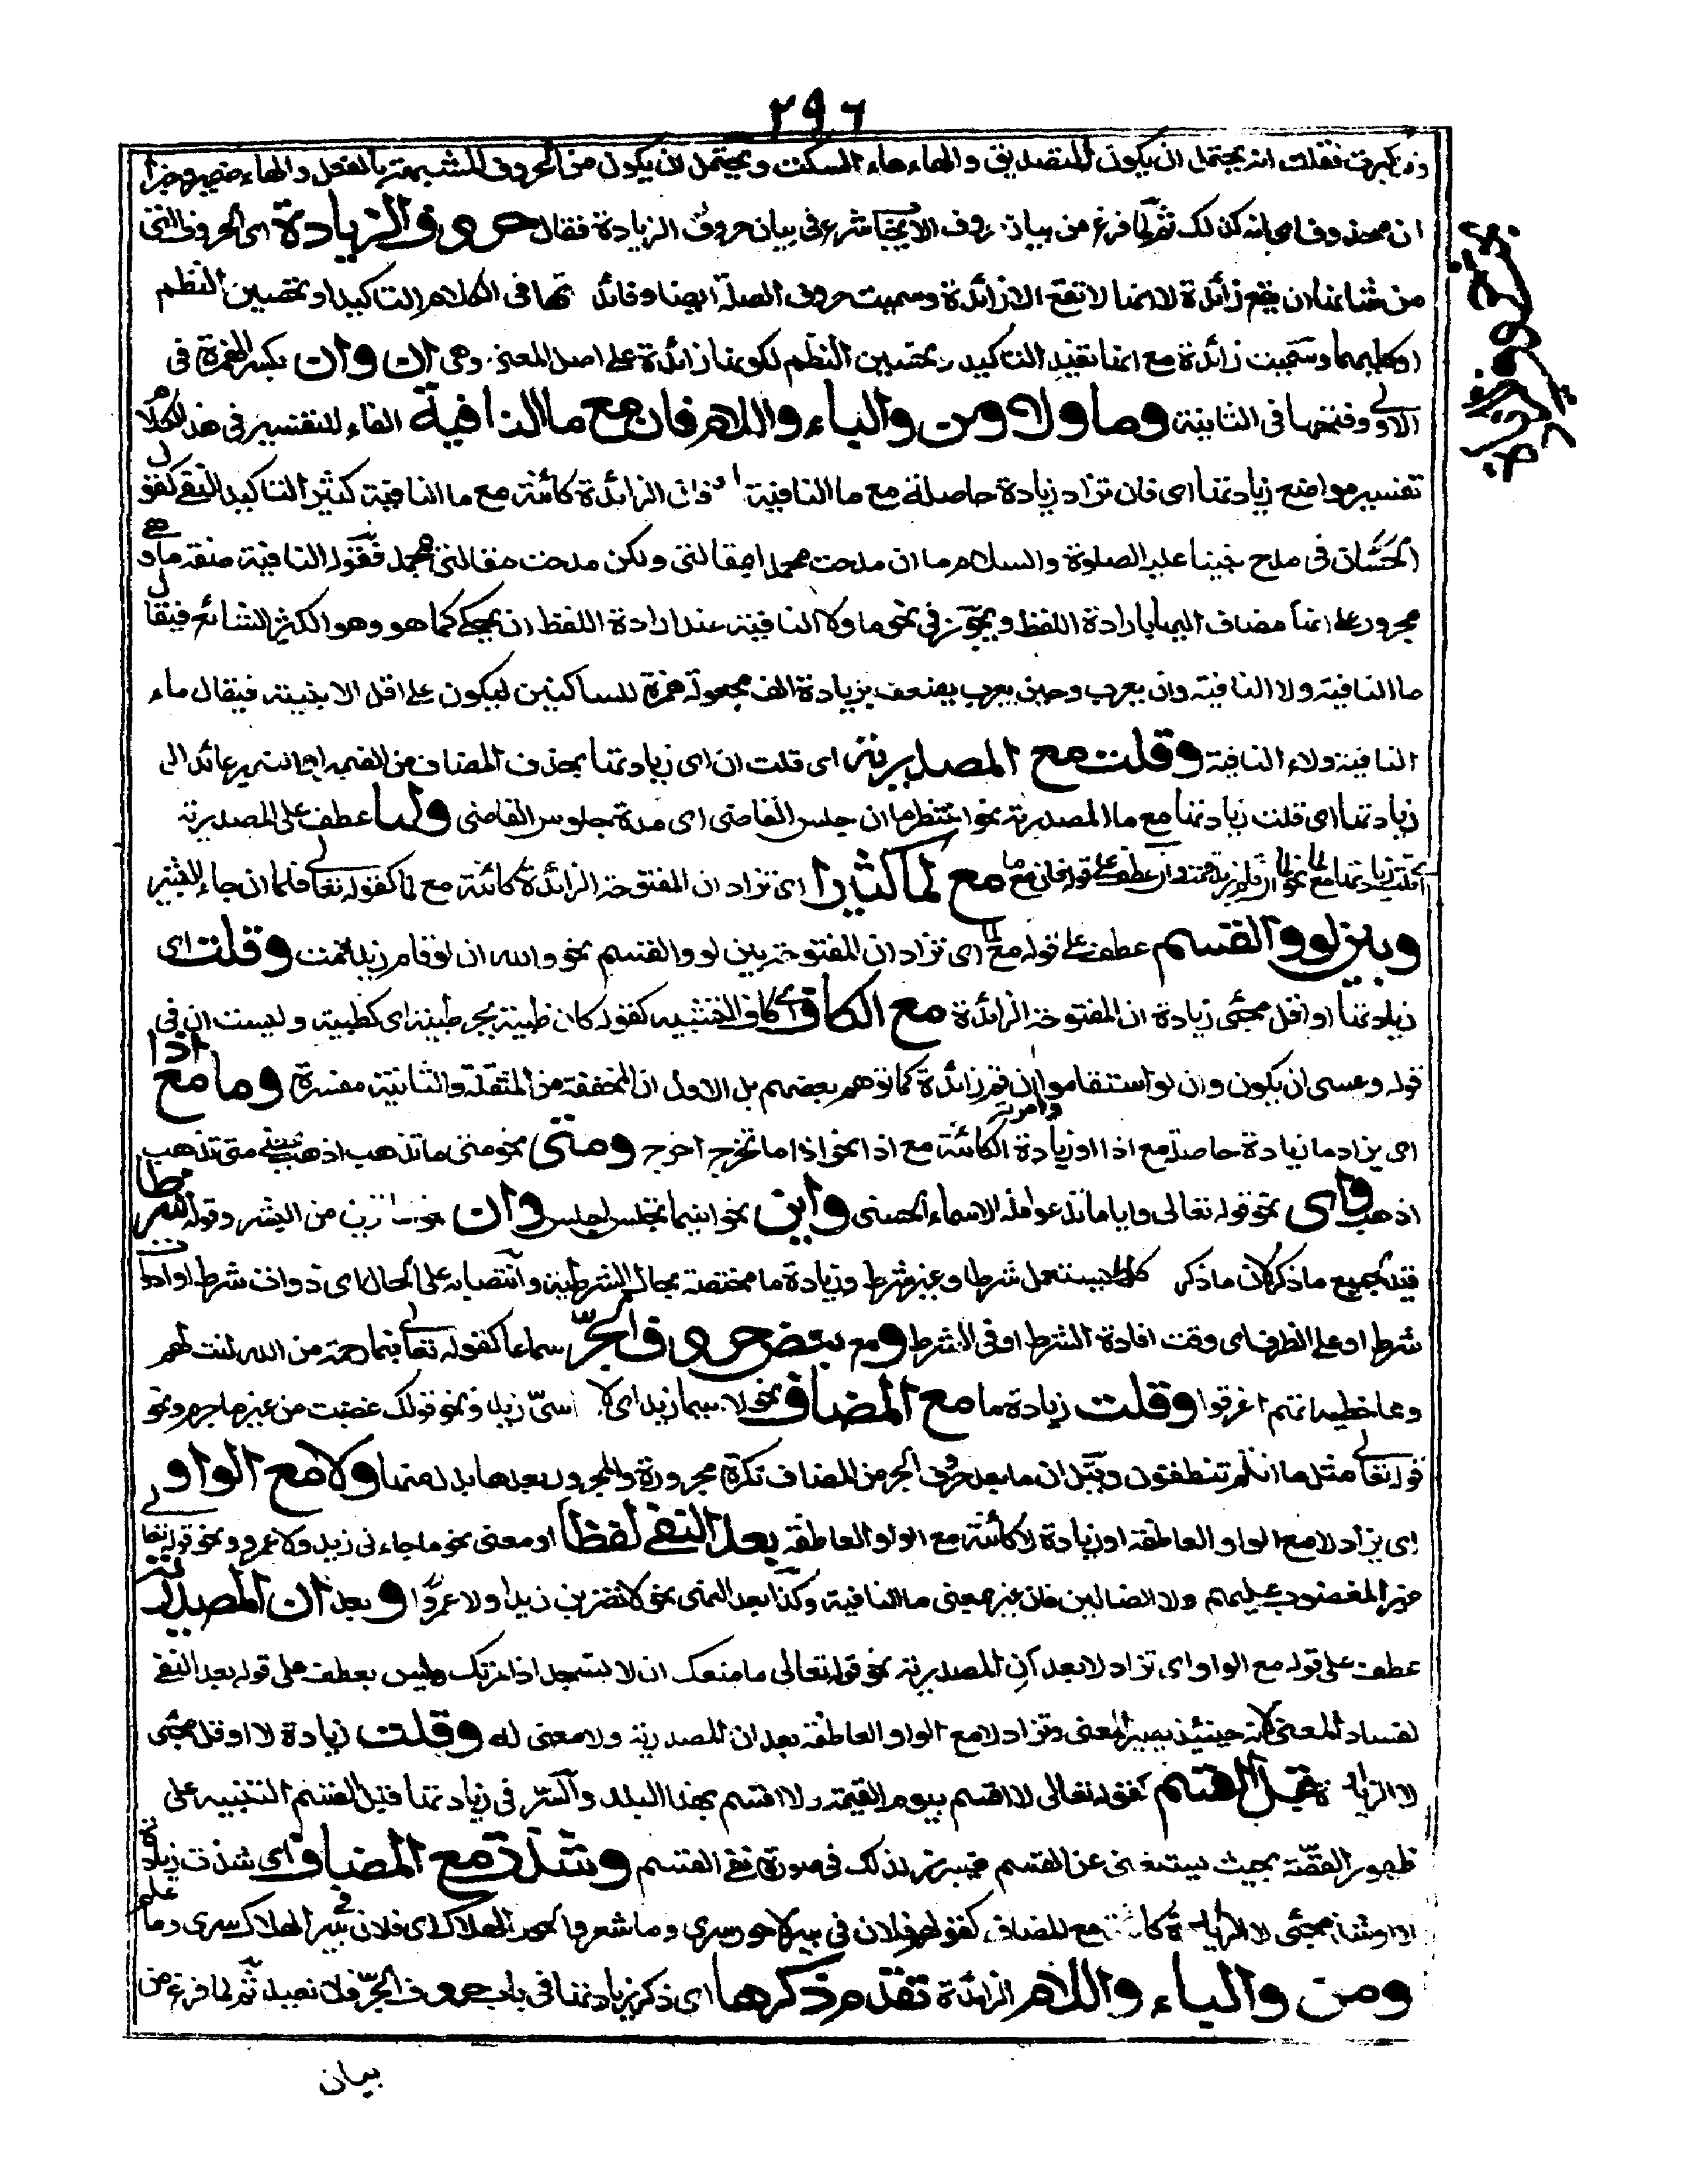 ٢٩٦
وقد كبرت فقلت انه يحتمل ان يكون للتصديق والهاء هاء السكت ويحتمل ان يكون من الحروف المشبهة بالفعل والهاء ضميره وخبر
ان محذوف اى انه كذلك ثم لما فرغ من بيان حروف الايجاب شرع فى بيان حروف الزيادة فقال حروف الزيادة اى الحروف التى
من شانها ان يقع زائدة لا انها لا تقع الا زائدة وسميت حروف الصلة ايضا وفائدتها فى الكلام التاكيد او تحسين النظم
او كليهما وسميت زائدة مع انها تفيد التاكيد وتحسين النظم لكونها زائدة على اصل المعنى وهى ان وان بكسر الهمزة فى
الاولى وفتحها فى الثانية وما ولا ومن والباء واللام فان مع ما النافية الفاء للتفسير فى هذا الكلام
تفسير مواضع زيادتها اى فان تزاد زيادة حاصلة مع ما النافية او فان الزائدة كائنة مع ما النافية كثيرا لتاكيد النفى كقول
الحسان فى مدح نبينا عليه الصلوة والسلام ما ان مدحت محمدا بمقالتى ولكن مدحت مقالتى بمحمد فقوله النافية صفة ما وهى
مجرور على انها مضاف اليها بارادة اللفظ ويجوز فى نحو ما ولا النافية عند ارادة اللفظ ان يحكى كما هو وهو الكثير الشائع فيقال
ما النافية ولا النافية وان يعرب وحين يعرب يضعف بزيادة الف مجعولة همزة للساكنين ليكون على اقل الابنية فيقال ماء
النافية ولاء النافية وقلت مع المصدرية اى قلت ان اى زيادتها بحذف المضاف من الضمير اى الضمير عائد الى
زيادتها اى قلت زيادتها مع ما المصدرية نحو انتظر ما ان جلس القاضى اى مدة جلوس القاضى ولما عطف على المصدرية
مع لما كثيرا اى تزاد ان المفتوحة الزائدة كائنة مع لما كقوله تعالى فلما ان جاء البشير
وبين لو والقسم عطف على قوله مع لما اى تزاد ان المفتوحة بين لو والقسم نحو والله ان لو قام زيد قمت وقلت اى
زيادتها او اقل مجئى زيادة ان المفتوحة الزائدة مع الكاف اى كاف التشبيه كقوله كان ظبية بجر ظبية اى كظبية وليست ان فى
قوله وعسى ان يكون وان لو استقاموا وان قم زائدة كما توهم بعضهم بل الاول ان المخففة من المثقلة والثانية مفسرة وما مع اذا
اى يزاد ما زيادة حاصلة مع اذا او زيادة الكائنة مع اذا نحو اذا ما تخرج اخرج ومتى نحو متى ما تذهب اذهب بمعنى متى تذهب
اذهب واى نحو قوله تعالى وايا ما تدعوا فله الاسماء الحسنى واين نحو اينما تجلس اجلس وان نحو فاما ترين من البشر وقوله شرطا
قيد لجميع ما ذكر لان ما ذكر كلها يستعمل شرطا وغير شرط وزيادة ما مختصة بحال الشرطية وانتصابه على الحال اى ذوات شرط او ادوات
شرط او على الظرف اى وقت افادة الشرط او فى الشرط ومع بعض حروف الجر سماعا كقوله تعالى فبما رحمة من الله لنت لهم
ومما خطيئاتهم اغرقوا وقلت زيادة ما مع المضاف نحو لا سيما زيد اى لا سىّ زيد ونحو قولك غضبت من غير ما جرم ونحو
قوله تعالى مثل ما انكم تنطقون وقيل ان ما بعد حروف الجر من المضاف نكرة مجرورة والمجرور بعدها بدل منها ولا مع الواو
اى يزاد لا مع الواو العاطفة او زيادة لا كائنة مع الواو العاطفة بعد النفى لفظا او معنى نحو ما جاءنى زيد ولا عمرو ونحو قوله تعالى
غير المغضوب عليهم ولا الضالين فان غير بمعنى ما النافية وكذا بعد النهى نحو لا تضرب زيدا ولا عمروا وبعد ان المصدرية
عطف على قوله مع الواو اى تزاد لا بعد ان المصدرية نحو قوله تعالى ما منعك ان لا تسجد اذ امرتك وليس بعطف على قوله بعد النفى
لفساد المعنى لانه حينئذ يصير المعنى وتزاد لا مع الواو العاطفة بعد ان المصدرية ولا معنى له وقلت زيادة لا او قل مجئى
لا الزيادة قبل القسم كقوله تعالى لا اقسم بيوم القيمة ولا اقسم بهذا البلد والسر فى زيادتها قبل القسم التنبيه على
ظهور القصة بحيث يستغنى عن القسم فيبرز لذلك فى صورة نفى القسم وشذت مع المضاف اى شذت زيادة
لا او شذ مجئى لا الزيادة كائنة مع المضاف كقولهم فلان فى بير لا حور سرى وما شعر والحور الهلاك اى فلان فى بير الهلاك سرى وما علم
ومن والباء واللام الزائدة تقدم ذكرها اى ذكر زيادتها فى باب حروف الجرّ فلا نعيد ثم لما فرغ من
بيان